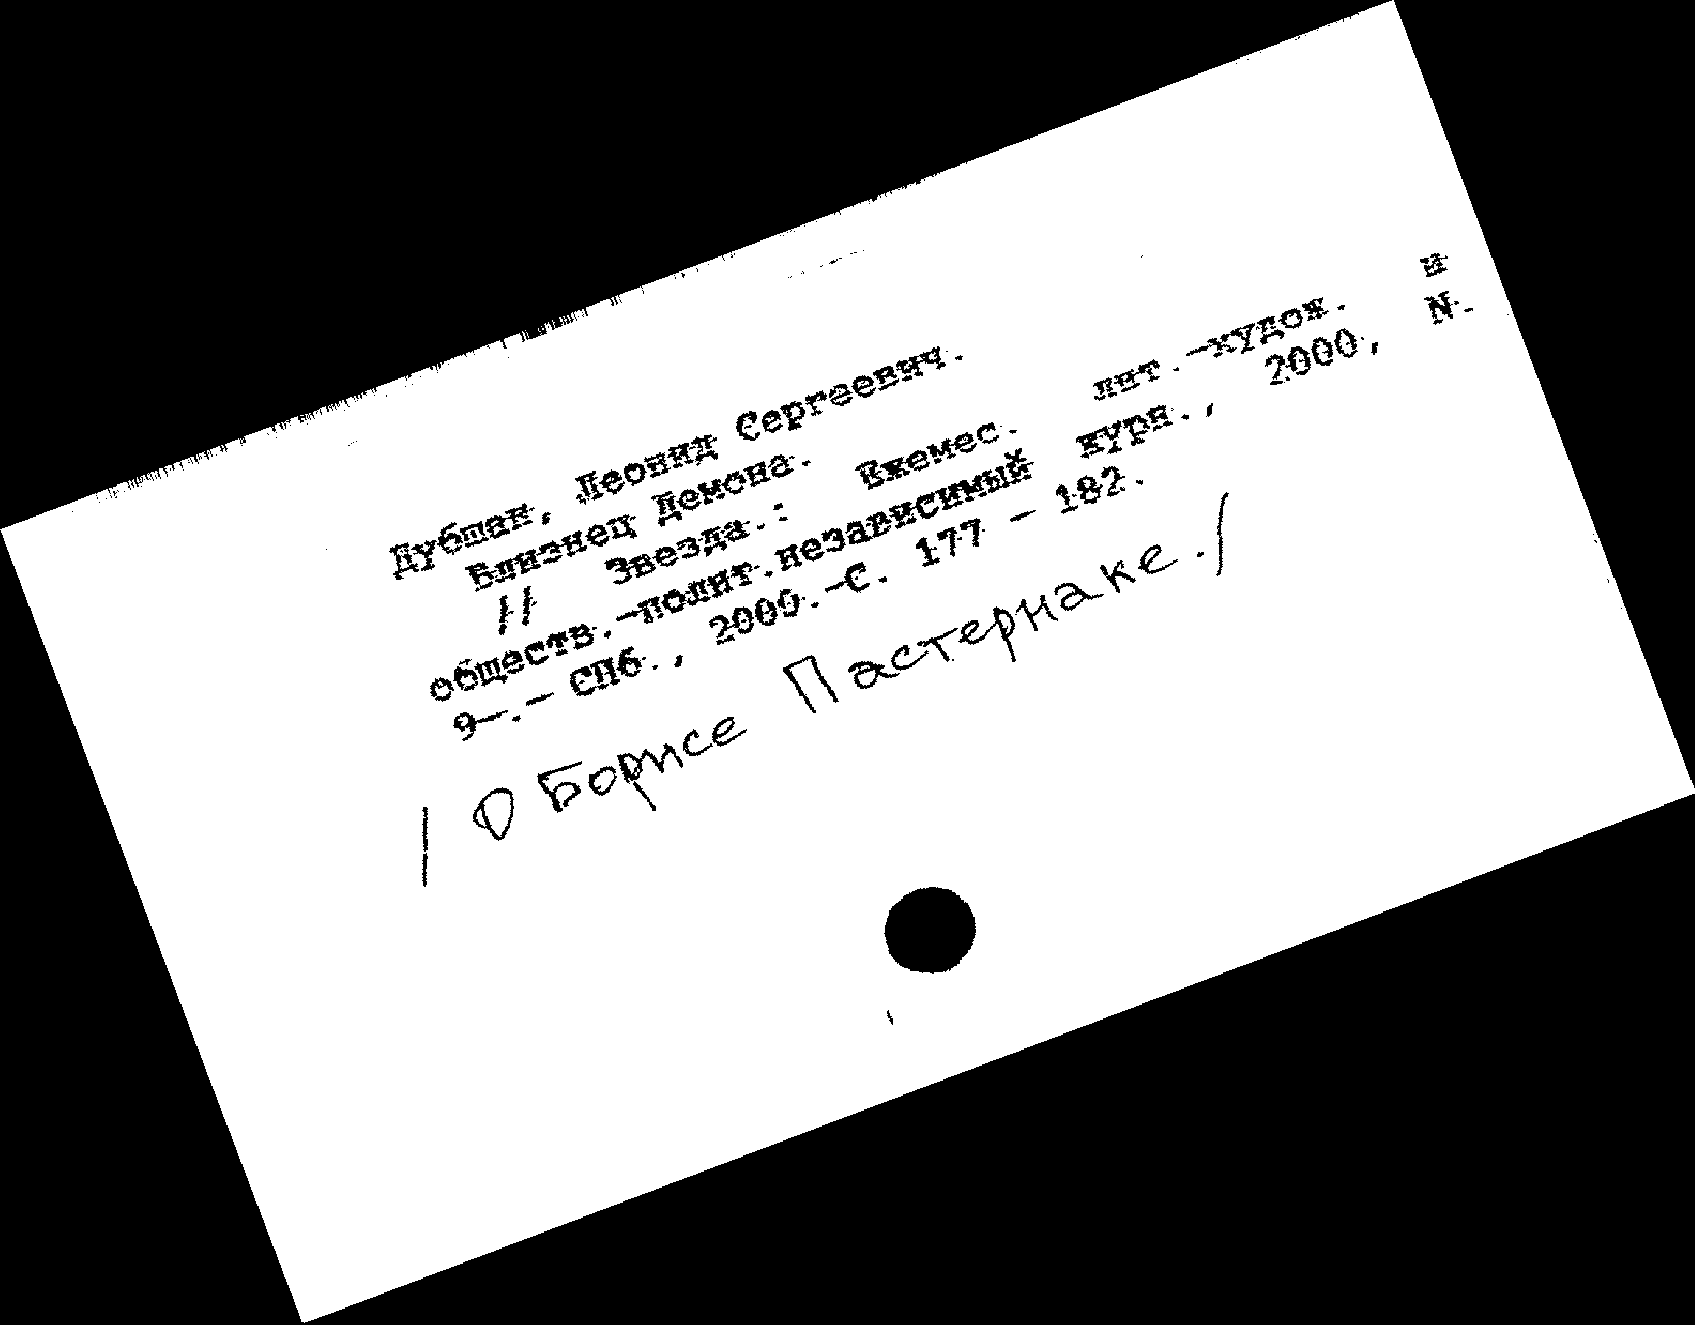 Дубшан, Леонид Сергеевич.
Близнец Демона.
// Звезда.: Ежемес. лит.-худож. и
обществ.-полит.независимый журн., 2000, N.
9-.- СПб., 2000.-С. 177 - 182.
/ О Борисе Пастернаке./